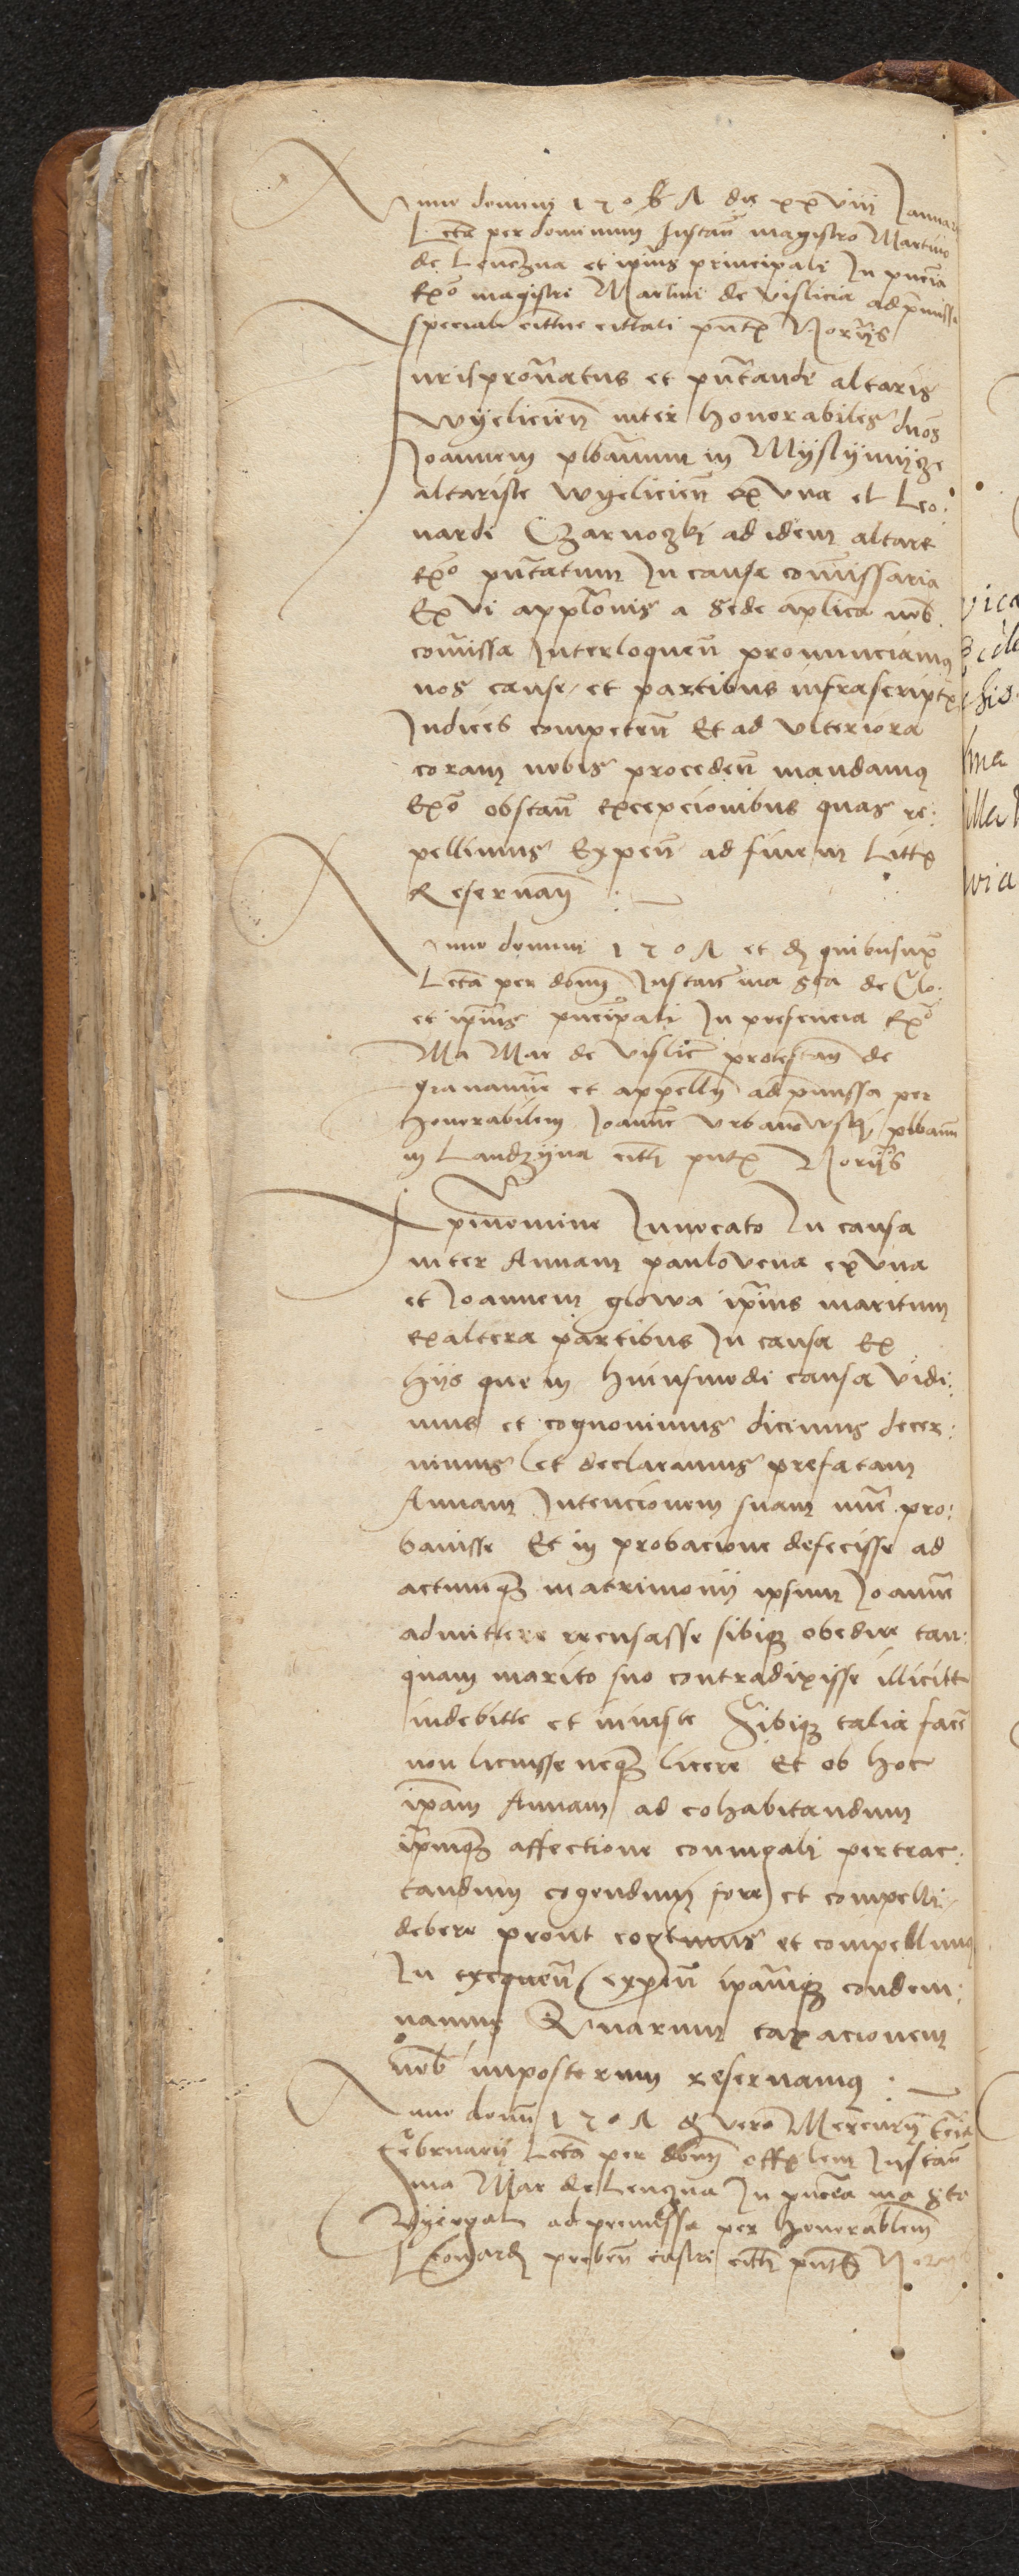 Anno domini 150 7 die xxviii Januarii
Lecta per dominum Instan̄ magistro Martino
de Lenczna et ip̄ius principali In pn̄cia
exo magistri Martini de vislicia ad premissa
speciali citt̄ne cittati pn̄tx Noriis
urispron̄atus et pn̄tande altaris
wyelicien̄ inter honorabiles dn̄os
Joannem plban̄um in Myslymycze
altariste wyelicien̄ ex vna et Leo:
nardi Czarnoczki ad idem altare
exo pn̄tatum In causa com̄issaria
Ex vi appl̄onis a Sede ap̄lica nob̄
com̄issa Interloquen̄ pronunciamus
nos cause et partibus infrascriptx
Iudices competen̄ Et ad vlteriora
coram nobis proceden̄ mandamus
Exo obstan̄ excepcionibus quas re:
pellimus Expen̄ ad finem Littx
Reservan̄
Anno domini 1507 et d quibus supx
Lecta per dom̄ Instan̄ ma sta de Clo:
et ip̄ius pn̄cipali In presencia exo
Ma Mar de vislic̄ protestan̄ de
gravamin̄e et appell̄ ad premissa per
honorabilem Joann̄e Vrbanowsky plban̄m
in Landzyna citt̄ pn̄tx Noriis
xpi nomine Invocato In causa
inter Annam paulovena ex vna
et Joannem glowa ip̄ius maritum
ex altera partibus In causa Ex
hiis que in huiusmodi causa vidi:
mus et cognovimus dicimus decer:
nimus et declaramus prefatam
Annam Intencionem suam min̄e pro:
bavisse Et in probacione defecisse ad
actumq3 matrimonii ipsum Joann̄e
admittere recusasse sibiq3 obedire tan:
quam marito suo contradixisse illicitte
indebitte et iniuste Sibiq3 talia fac̄e
non licuisse neq3 licere Et ob hoc
ip̄am Annam ad cohabitandum
ip̄umq3 affectione coniugali pertrac:
tandum cogendum fore et compelli
debere prout cogimus et compellimus
In exequen̄ expen̄ ip̄amq3 condem:
namus Quarum taxacionem
nob̄ imposterum reservamus
Anno domi 1507 d vero Mercurii tercia
februarii Lecta per dom̄ offx̄lem Instan̄
ma Mar de Lenczna In pn̄cia ma sto
ad premissa per honorab̄lem
Leonard preben̄ castri citt̄ pn̄ts